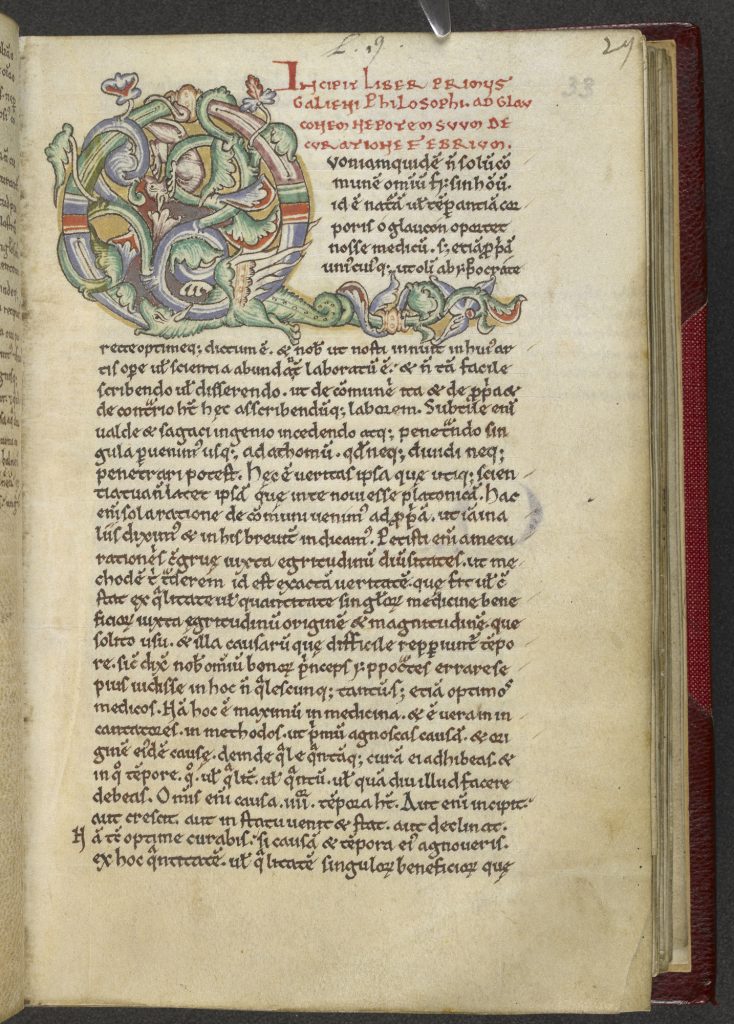 L. 9.
29
33
INCIPIT LIBER PRIMUS
GALIENI PHILOSOPHI. AD GLAU
CONEM NEPOTEM SUUM DE
CURATIONE FEBRIUM.
QVONIAM QUIDĒ ñ solū cō
munē omiū
id ē natā uł tēperantiā cor
poris o glaucon oportet
nosse medicū. s; etiā ꝓpā
uniuscuiꝰq; ut olī ab yppocrate
recte optimeq; dictum ē. & nob̄ ut nosti innuit in huiꝰ ar
tis ope uł scientia abundat̄ laboratū ē. & ñ tā facile
scribendo uł disserendo. ut de cōmune ita & de ꝓpa &
de contrio ht̄ hec asscribendūq; laborem. Subtile enī
ualde & sagaci ingenio incedendo atq; penetndo sin
gula puenimꝰ usq; ad athomū. qd neq; diuidi neq;
penetrari potest. Hęc ē ueritas ipsa que utiq; scien
tia tuā ñ latet ipsā que in te noui esse platonicā. Hac
enī sola ratione de cōmuni uenimꝰ ad ꝓpā. ut iā in a
liis diximꝰ & in his breuit̄ indicam̄. Petisti enī a me cu
rationes cgrue iuxta egritudinū diuisitates. ut me
thodē id est exactā ueritatē. que
stat ex qlitate uł quantitate singloꝝ medicine bene
ficioꝝ iuxta egritudinū originē & magnitudinē. que
solito usu. & illa causarū que difficile repiunt̄ tēpo
re. sic dix̄ nob̄ omiū bonoꝝ pnceps yppoctes errare se
pius uidisse in hoc ñ qlescunq; tantū s; etiā optimos
medicos. Nā hoc ē maximū in medicina. & ē uera in in
cantatores. in methodos. ut pmū agnoscas causā. & ori
ginē eidē cause. deinde qle qntaq; curā ei adhibeas. &
in qo tēpore. qo. uł qlit̄. uł qntū. uł quā diu illud facere
debeas. Omīs enī causa .iiii. tēpora ht̄. Aut enī incipit.
aut crescit. aut in statu uenit & stat. aut declinat.
Nā tc̄ optime curabis. si causā & tēpora eiꝰ agnoueris.
ex hoc qntitatē. uł qlitatē singuloꝝ beneficioꝝ que